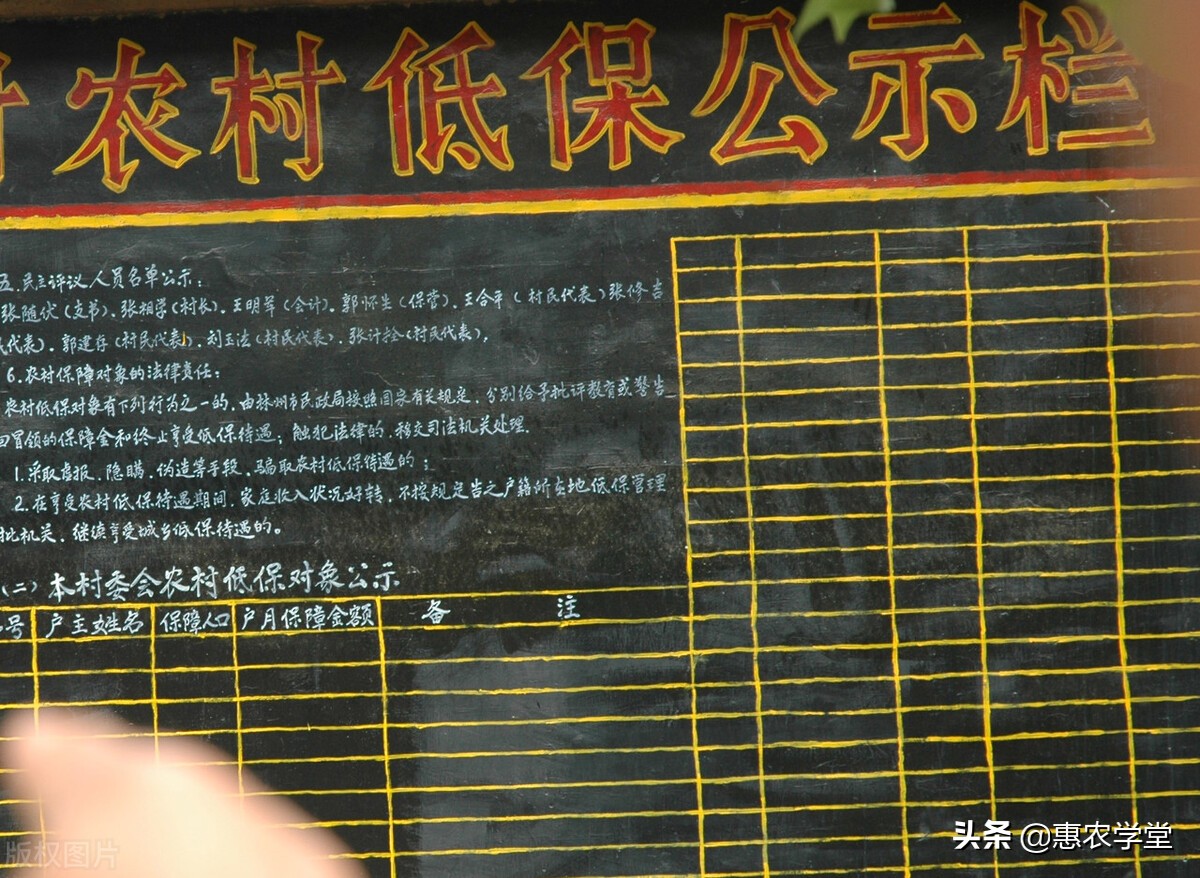 村农村低保公示栏
五.民主评议人员名单公示：
张随伏(支书).张相学(村长).王明军(会计).郭怀生(保管).王合平(村民代表)张修吉
民代表).郭建存(村民代表).刘玉法(村民代表).张计拴(村民代表),
6.农村保障对象的法律责任：
农村低保对象有下列行为之一的,由林州市民政局按照国家有关规定,分别给予批评教育或警告
回冒领的保障金和终止享受低保待遇；触犯法律的,移交司法机关处理.
1.采取虚报、隐瞒、伪造等手段、骗取农村低保待遇的；
2.在享受农村低保待遇期间.家庭收入状况好转、不按规定告之户籍所在地低保管理
批机关、继续享受城乡低保待遇的。
(二)本村委会农村低保对象公示
号 户主姓名 保障人口 户月保障金额 备 注
头条 @惠农学堂
版权图片